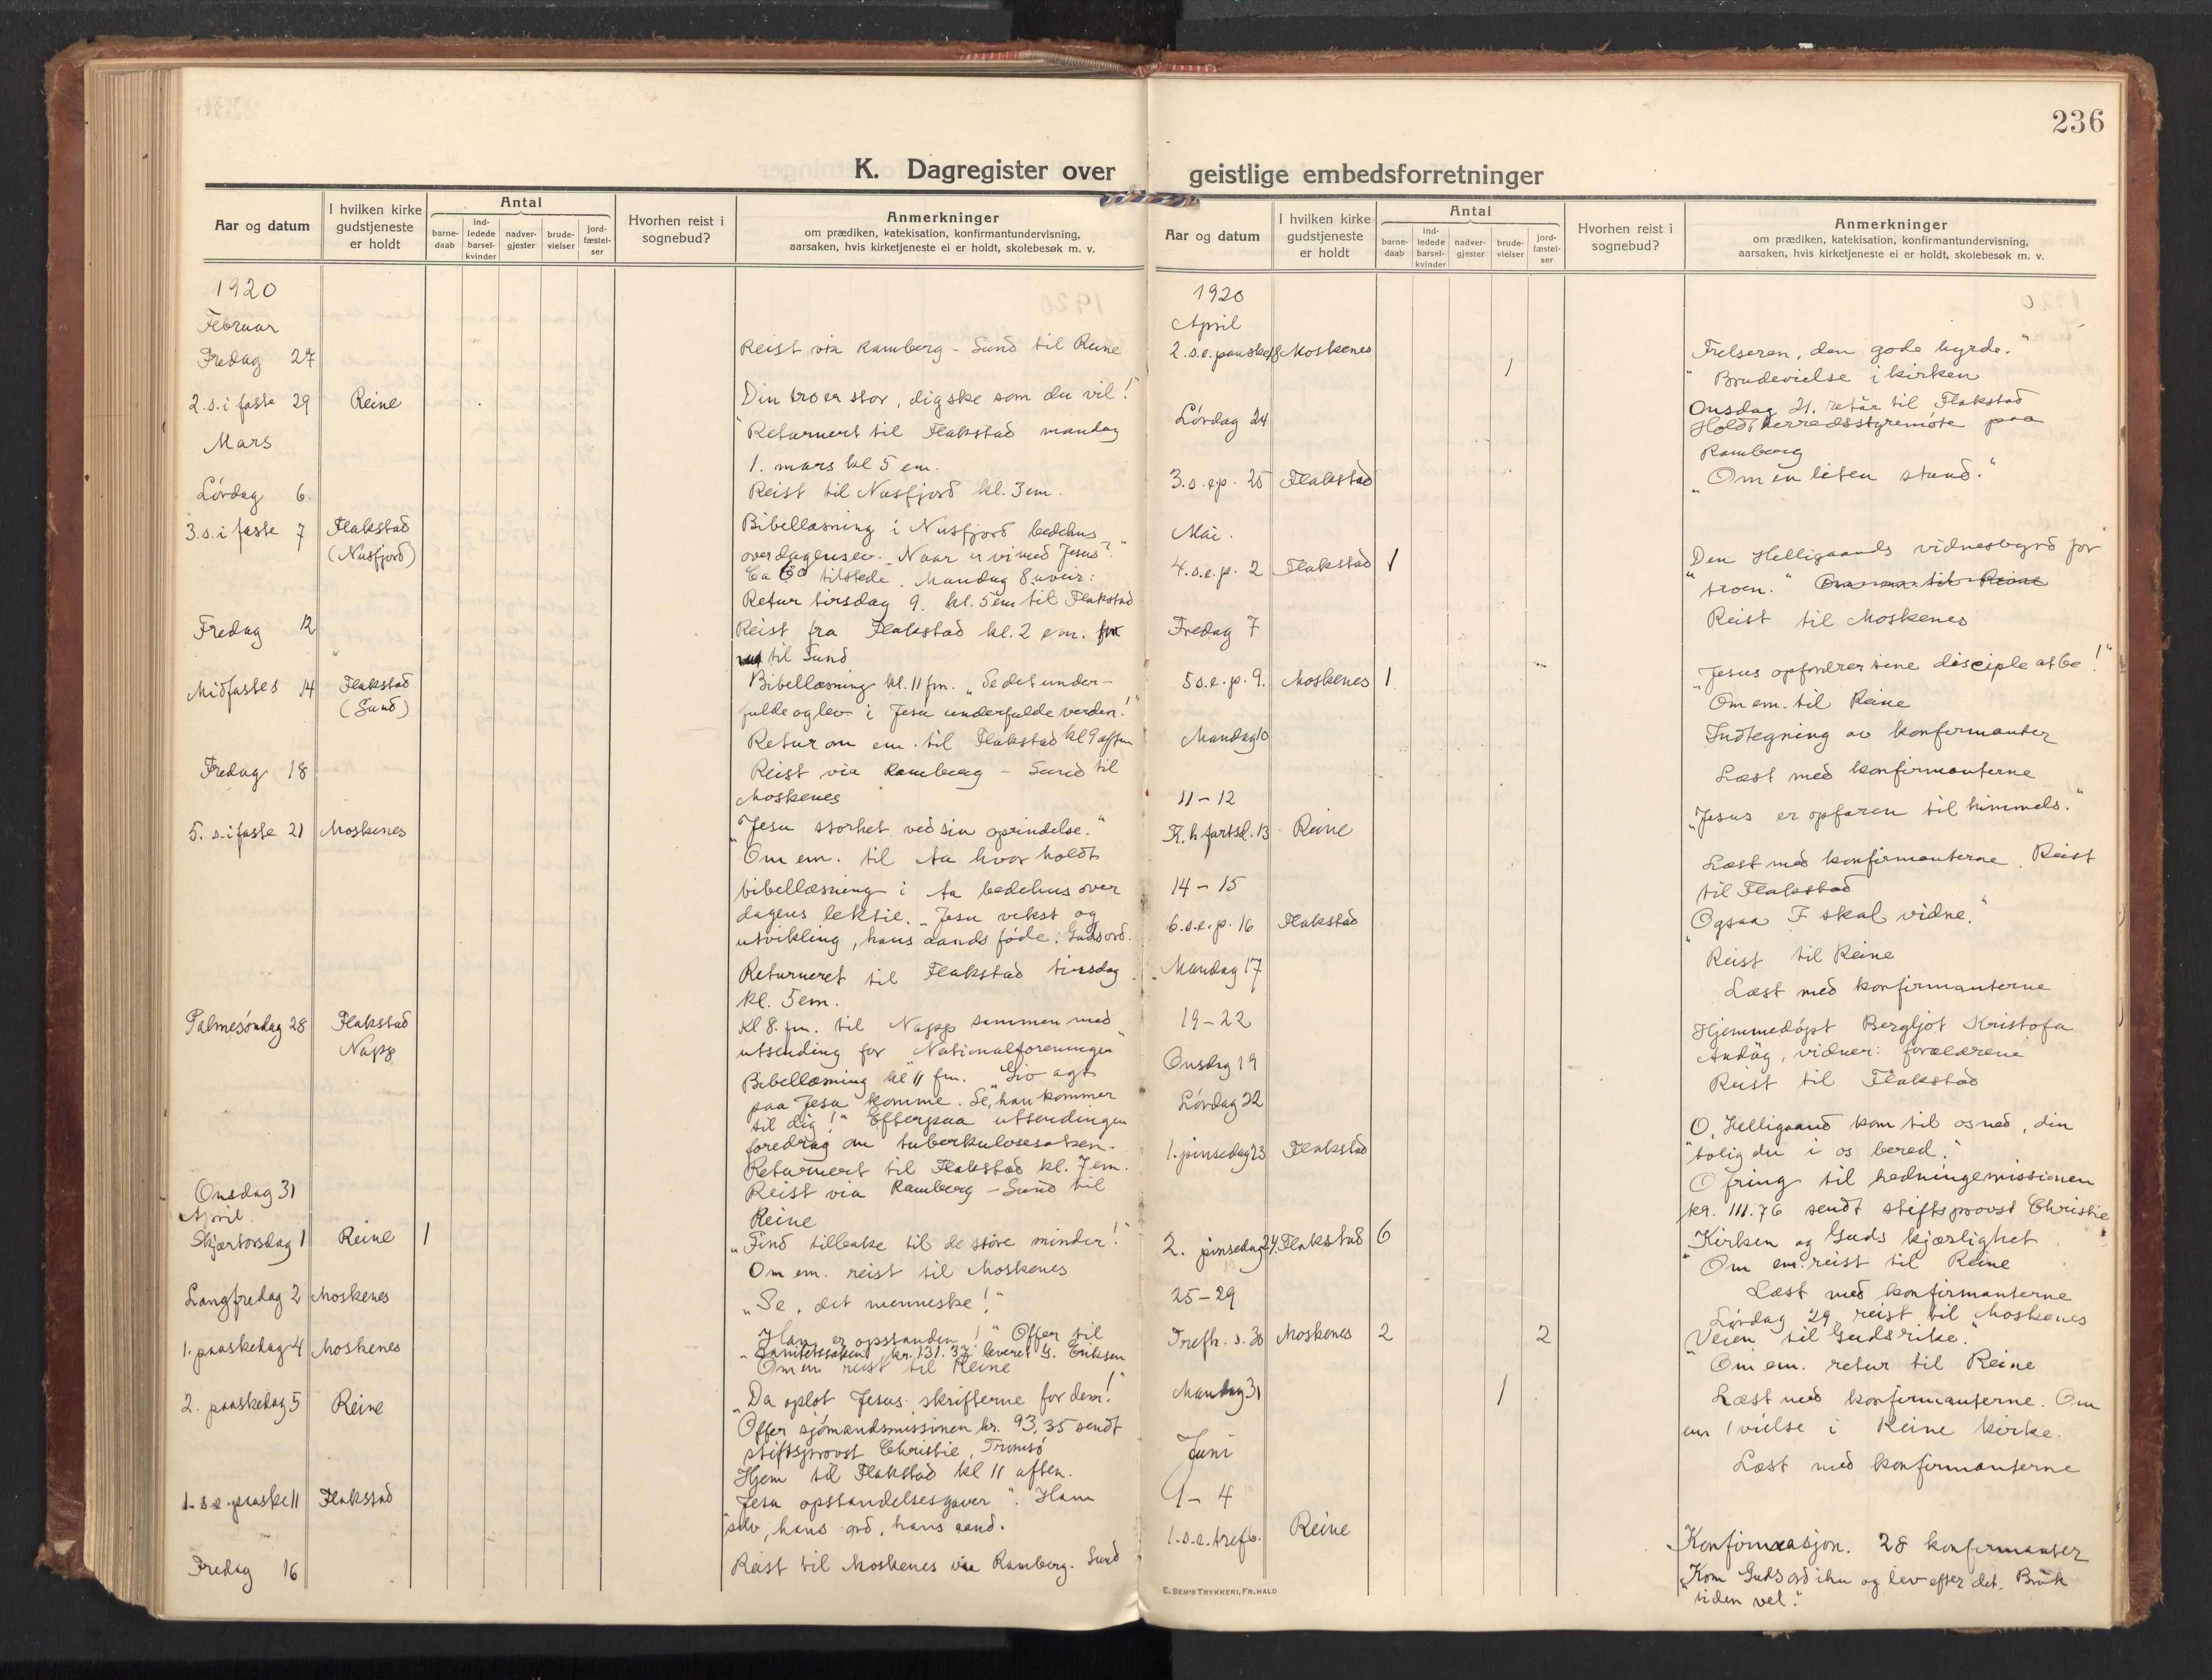 236
K. Dagregister over geistlige embedsforretninger
Aar og datum
I hvilken kirke gudstjeneste er holdt
Antal
barne-daab
ind-ledede barsel-kvinder
nadver-gjester
brude-vielser
jord-fæstel-ser
Hvorhen reist i sognebud?
Anmerkninger
om prædiken, katekisation, konfirmantundervisning,
aarsaken, hvis kirketjeneste ei er holdt, skolebesøk m. v.
1920
Februar
Fredag 27 Reist via Ramberg - Sund til Reine
2. s. i faste 29 Reine „Din tro er stor, dig ske som du vil!"
Returnert til Flakstad mandag
Mars
1. mars kl 5 em.
Lørdag 6. Reist til Nusfjord kl. 3 em.
3. s. i faste 7 Flakstad Bibellæsning i Nusfjord bedehus
(Nusfjord) over dagens ev. „Naar er vi med Jesus?"
Ca 60 tilstede. Mandag 8. uveir:
Retur tirsdag 9. kl. 5 em til Flakstad
Fredag 12 Reist fra Flakstad kl. 2 em.
til Sund
Midfastes 14 Flakstad Bibellæsning kl. 11 fm. „Se det under-
(Sund) fulde og lev i Jesu underfulde verden!"
Retur om em. til Flakstad kl 9 aften
Fredag 18 Reist via Ramberg - Sund til
Moskenes
5. s. i faste 21 Moskenes „Jesu storhet ved sin oprindelse."
Om em. til Aa hvor holdt
bibellæsning i Aa bedehus over
dagens lektie. „Jesu vekst og
utvikling, hans aands føde: Guds ord.
Returneret til Flakstad tirsdag
kl. 5 em.
Palmesøndag 28 Flakstad Kl 8. fm. til Napp sammen med
Napp utsending for „Nationalforeningen"
Bibellæsning kl 11 fm. „Giv agt
paa Jesu komme. Se, han kommer
til dig!" Efterpaa utsendingen
foredrag om tuberkulosesaken.
Returnert til Flakstad kl. 7 em.
Onsdag 31 Reist via Ramberg - Sund til
Reine
April.
Skjærtorsdag 1 Reine 1 „Find tilbake til de store minder!"
Om em. reist til Moskenes
Langfredag 2 Moskenes „Se, det menneske!"
1. paaskedag 4 Moskenes „Han er opstanden!" Offer til
Sanitetssaken kr. 131.33 leveret G. Eriksen
Om em reist til Reine
2. paaskedag 5 Reine „Da oplot Jesus skrifterne for dem!"
Offer sjømandsmissionen kr. 93,35 sendt
stiftsprovst Christie, Tromsø
Hjem til Flakstad kl 11 aften.
1. s. e. paaske 11 Flakstad „Jesu opstandelsesgaver". Ham
selv, hans ord, hans aand.
Fredag 16 Reist til Moskenes via Ramberg - Sund
Aar og datum
I hvilken kirke gudstjeneste er holdt
Antal
barne-daab
ind-ledede barsel-kvinder
nadver-gjester
brude-vielser
jord-fæstel-ser
Hvorhen reist i sognebud?
Anmerkninger
om prædiken, katekisation, konfirmantundervisning,
aarsaken, hvis kirketjeneste ei er holdt, skolebesøk m. v.
1920
April
2. s. e. paaske 18 Moskenes 1 „Frelseren, den gode hyrde."
Brudevielse i kirken
Onsdag 21. retur til Flakstad
Lørdag 24 Holdt herredsstyremøte paa
Ramberg
3. s. e. p. 25 Flakstad „Om en liten stund."
Mai.
4. s. e. p. 2 Flakstad 1 „Den Helligaands vidnesbyrd for
troen."
Fredag 7 Reist til Moskenes
5 s. e. p. 9. Moskenes 1 „Jesus opfordrer sine disciple at be!"
Om em. til Reine
Mandag 10 Indtegning av konfirmanter
11 - 12 Læst med konfirmanterne
K. h fartsd. 13 Reine „Jesus er opfaren til himmels."
14 - 15 Læst med konfirmanterne. Reist
til Flakstad
6. s. e. p. 16 Flakstad „Ogsaa I skal vidne."
Mandag 17 Reist til Reine
19 - 22 Læst med konfirmanterne
Onsdag 19 Hjemmedøpt Bergljot Kristofa
Andåg, vidner: forældrene
Lørdag 22 Reist til Flakstad
1. pinsedag 23 Flakstad „O, Helligaand kom til os ned, din
bolig du i os bered."
Ofring til hedningemissionen
kr. 111.76 sendt stiftsprovst Christie
2. pinsedag 24. Flakstad 6 „Kirken og Guds kjærlighet
Om em. reist til Reine
25 - 29 Læst med konfirmanterne
Lørdag 29 reist til Moskenes
Trefh. s. 30 Moskenes 2 2 „Veien til Guds rike."
Om em. retur til Reine
Mandag 31 1 Læst med konfirmanterne. Om
em 1 vielse i Reine kirke.
Juni
1 - 4 Læst med konfirmanterne
1. s. e. tref. 6. Reine Konfirmasjon. 28 konfirmanter
„Kom Guds ord ihu og lev efter det. Bruk
tiden vel."
E. SEM'S TRYKKERI, FR. HALD